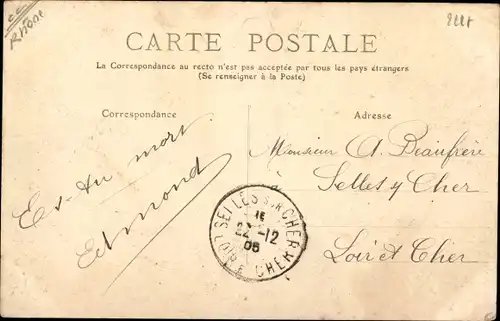 Rhône
CARTE POSTALE
La Correspondance au recto n'est pas acceptée par tous les pays étrangers
(Se renseigner à la Poste)
Correspondance
Adresse
Es-tu mort
Edmond
Monsieur A. Beaufrère
Selles s/ Cher
Loir et Cher
SELLES SUR CHER
22 -12
LOIR ET CHER